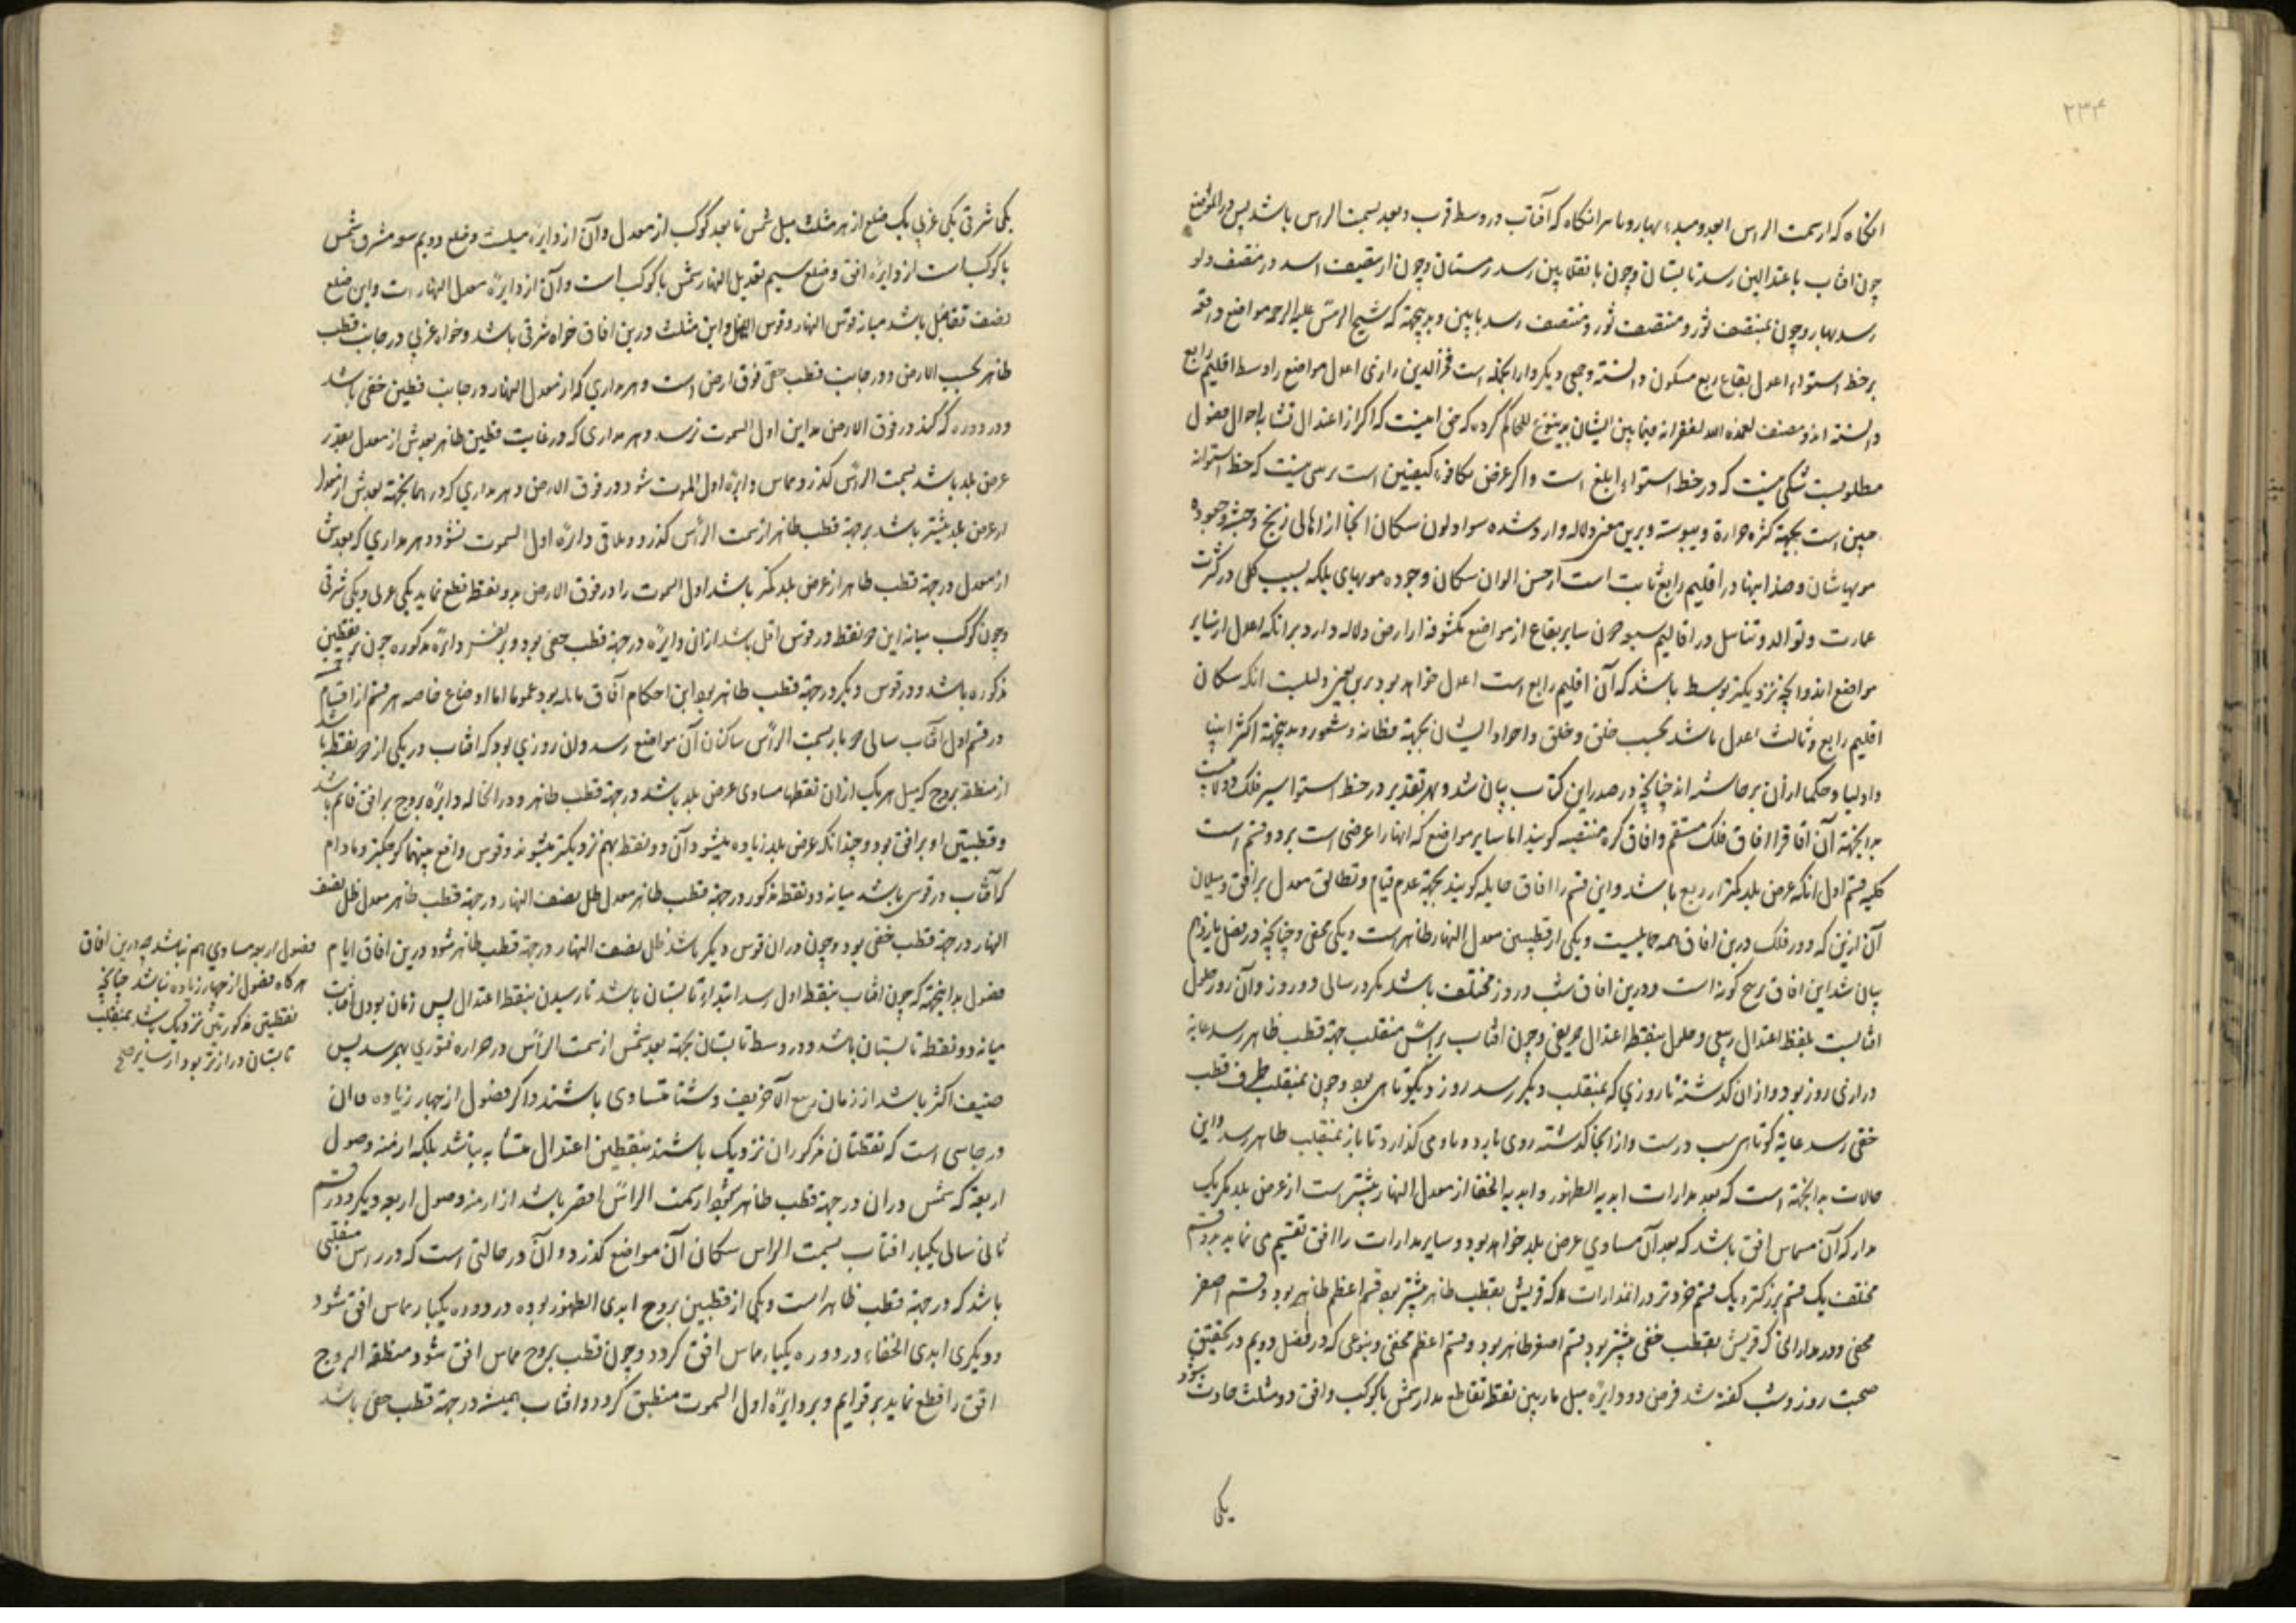 ۲۳۴
آنگاه که از سمت الراس ابعد و مبدء بهار و ما سر انگاه که آفتاب در وسط قرب و بعد بسمت الراس باشد پس در المواضع
چون افتاب باعتدالین رسد تابستان و چون بانقلابین رسد زمستان و چون از منتصف اسد و در منتصف دلو
رسد بهار و چون بمنتصف ثور و منتصف رسد پاییز و بدینجهة که شیخ الرئیس علیه الرحمه مواضع واقعه
بر خط استواء اعدل بقاع ربع مسکون دانسته و جمعی دیگر و از آنجمله است فخرالدین رازی اعدل مواضع را وسط اقلیم رابع
دانسته اند و مصنف فیما بین ایشان بدینوع محاکم کرده که حق اینست که اگر از اعتدال تشابه احوال فصول
مطلوبست شکی نیست که در خط استواء ابلغ است و اگر غرض تکافؤ کیفیتین است برسی نیست که خط استوا نه
چنین است بجهة کثرة حرارة و یبوسته و برین معنی دلاله دارد شده سواد لون سکان آنجا از اهالی زنج و حبشه و جعوده
مویهاشان و ضد اینها در اقلیم رابع ثابت است از حسن الوان سکان و جوده مویهای بلکه بسبب کلی در کثرت
عمارت و توالد و تناسل در اقالیم سبعه چون سایر بقاع از مواضع مکشوفه از ارض دلاله دارد بر انکه اعدل از سایر
مواضع اند و آنچه نزدیکتر بوسط باشد که آن اقلیم رابع است اعدل خواهد بود برین معنی دلیلست انکه سکان
اقلیم رابع و ثالث اعدل باشد بحسب خلق و خلق و اجواد ایشان بجهة فطانه و شعور و بدینجهة اکثر انبیا
و اولیا و حکما از آن برخاسته اند چنانچه در صدر این کتاب بیان شد و بهر تقدیر در خط استوا سیر فلک دولابیست
بدانجهة آن افاق را افاق فلک مستقیم و افاق کره منتصبه گویند اما سایر مواضع که انها را عرضی است بر دو قسم است
کلیه قسم اول انکه عرض بلد کمتر از ربع باشد و این قسم را افاق مایله گویند بجهة عدم قیام و تطابق معدل بر افق و میلان
آن ازین که دور فلک درین افاق همه حمایلیست و یکی از قطبین معدل النهار ظاهر است و یکی مخفی و چنانچه در فصل یازدهم
بیان شد این افاق بر پنج گونه است و درین افاق شب و روز مختلف باشد مگر در سالی دو روز و آن روز حلول
افتابست بنقطه اعتدال ربیعی و حلول بنقطه اعتدال خریفی و چون افتاب برأس منقلب جهة قطب ظاهر رسد غایة
درازی روز بود و از آن گذشته تا روزی که بمنقلب دیگر رسد روز دیگر کوتاهی بود و چون بمنقلب طرف قطب
خفی رسد غایة کوتاهی شب درست و از انجا گذشته روی بازدیاد می گذارد تا باز بمنقلب ظاهر رسد و این
حالات بدانجهة است که بعد مدارات ابدیه الظهور و ابدیه الخفا از معدل النهار بیشتر است از عرض بلد مگر یک
مدار که آن مماس افق باشد که بعد آن مساوی عرض بلد خواهد بود و سایر مدارات را افق تقسیم می نماید بدو قسم
مختلف یک قسم بزرگتر و یک قسم خردتر در انمدارات که قربش بقطب ظاهر بیشتر بود قسم اعظم ظاهر بود و قسم اصغر
مخفی و در مدارانی که قربش بقطب خفی بیشتر بود قسم اصغر ظاهر بود و قسم اعظم مخفی و بنوعی که در فصل دویم در کیفیتی
صحبت روز و شب گفته شد فرض دو دایرهٔ میل مارین نقطه تقاطع مدار شمس یا کوکب و افق دو مثلث حادث شود
یکی
یکی شرقی یکی غربی یک ضلع از هر مثلث میل شمس تا بعد کوکب از معدل و آن از دایرهٔ میلست و ضلع دویم سعه مشرق شمس
یا کوکب است از دایرهٔ افق و ضلع سیم تعدیل النهار شمس یا کوکب است و آن از دایرهٔ معدل النهار است و این ضلع
نصف تفاضل باشد میانه قوس النهار و قوس اللیل و این مثلث درین افاق خواه شرقی باشد و خواه غربی در جانب قطب
ظاهر تحت الارض و در جانب قطب خفی فوق ارض است و هر مداری که از معدل النهار در جانب قطبین خفی باشد
و در دوره که کند در فوق الارض بدایره اول السموت نرسد و هر مداری که در جانب قطبین ظاهر بعدش از معدل بقدر
عرض بلد باشد بسمت الرأس گذرد و مماس دایرهٔ اول السموت شود در فوق الارض و هر مداری که در همانجهة بعدش از معدل
از عرض بلد بیشتر باشد برجهة قطب ظاهر از سمت الرأس گذرد و ملاقی دایرهٔ اول السموت نشود و هر مداری که بعدش
از معدل در جهة قطب ظاهر از عرض بلد کمتر باشد اول السموت را در فوق الارض بدو نقطه قطع نماید یکی غربی و یکی شرقی
و چون کوکب میانه این دو نقطه در قوس اقل باشد از آن دایره در جهة قطب خفی بود و بر نفس دایرهٔ مذکوره چون بر نقطتین
مذکوره باشد و در قوس دیگر در جهة قطب ظاهر بود این احکام آفاق مایله بود عموما اما اوضاع خاصه هر قسم از اقسام
در قسم اول آفتاب سالی دو بار بسمت الرأس ساکنان آن مواضع رسد و ان روزی بود که افتاب در یکی از دو نقطه باشد
از منطقه بروج که میل هر یک ازان نقطها مساوی عرض بلد باشد در جهة قطب ظاهر و در انحاله دایرهٔ بروج بر افق قائم باشد
و قطبین او بر افق بود و چندانکه عرض بلد زیاده میشود آن دو نقطه بهم نزدیکتر میشوند و قوس واقع بینهما کوچکتر و مادام
که آفتاب در قوسی باشد میانه دو نقطه مذکور در جهة قطب ظاهر معدل ظل نصف النهار در جهة قطب ظاهر معدل ظل نصف
النهار در جهة قطب خفی بود و چون در ان قوس دیگر باشد ظل نصف النهار در جهة قطب ظاهر شود و درین افاق ایام
فصول بدانجهة که چون افتاب بنقطه اول رسد ابتداء تابستان باشد تا رسیدن بنقطه اعتدال پس زمان بودن آفتاب
میانه دو نقطه تابستان باشد و در وسط تابستان بجهة بعد شمس از سمت الرأس در حراره فتوری بهم رسد پس
صیف اکثر باشد از زمان ربیع الا خریف و شتا متساوی باشند و اگر فصول از چهار زیاده و ان
در جایی است که نقطتان مذکوران نزدیک باشند بنقطتین اعتدال متشابه نباشد بلکه ازمنه وصول
اربعة که شمس در ان در جهة قطب ظاهر از سمت الرأس اقصر باشد از ازمنه وصول اربعه دیگر و در قسم
ثانی سالی یکبار افتاب بسمت الراس سکان آن مواضع گذرد و آن در حالتی است که در رأس منقلبی
باشد که در جهة قطب ظاهر است و یکی از قطبین بروج ابدی الظهور بوده در دوره یکبار مماس افق شود
و دیگری ابدی الخفاء در دوره یکبار مماس افق گردد و چون قطب بروج مماس افق شود منطقه البروج
افق را قطع نماید بر قوایم و بر دایرهٔ اول السموت منطبق گردد و افتاب همیشه در جهة قطب خفی باشد
فصول اربعه مساوی هم نباشد چه درین افاق
هرگاه فصول از چهار زیاده نباشد چنانچه
نقطتین مذکورتین نزدیک باشد بمنقلب
تابستان درازتر بود از سایر صح